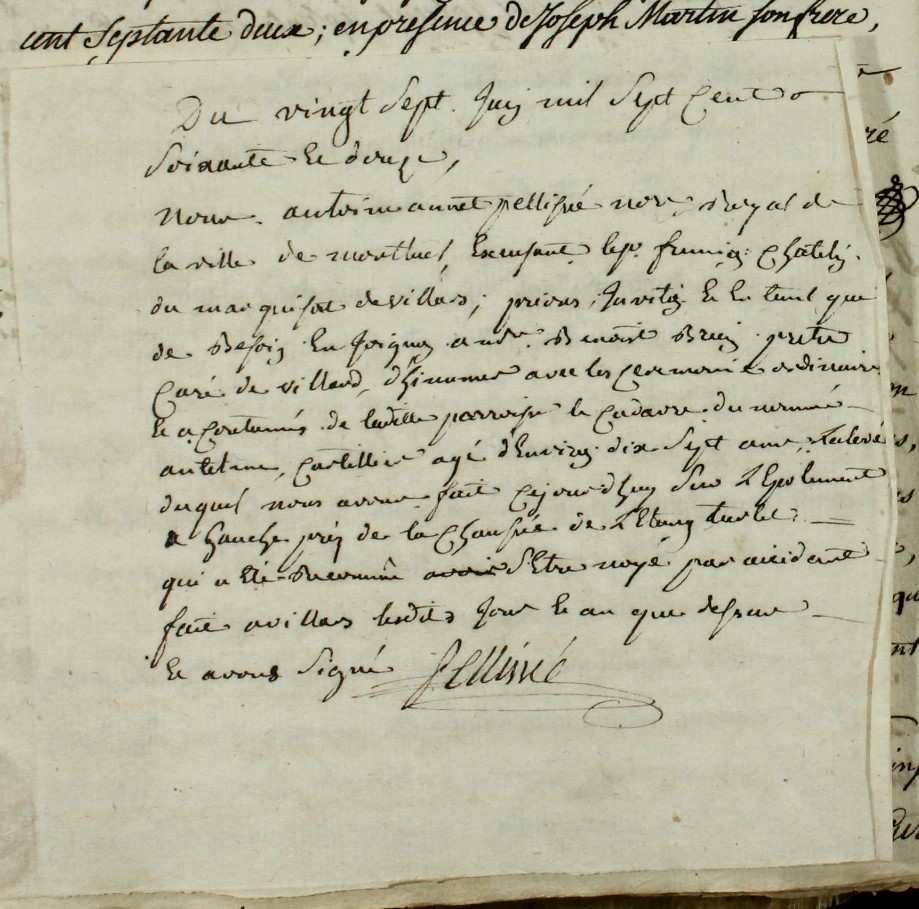 cent Septante deux ; en presence de Joseph Martin son frere,
Du vingt Sept Juin mil Sept Cent
Soixante et douze,
nous antoine annet pellissié no.re Royal de
la ville de montluel Exerçant les fonction Chatelin
du marquisat de villars ; prions, Invitons Et En tant que
de Besoin Enjoignons a m.re Benoist Brun pretre
Curé de villard, d'hinumer avec les ceremonie ordinaire
Et acoutumés de ladite parroisse le Cadavre du nommé
antelme, agé d'Environ dix Sept ans, La levé
duquel nous avons fait Cejourd'huy Sur
a Gauche prés de la Chaussée de L'Etang
qui a Eté Reconnu avoir S'Etre noyé par accident
fait a villars lesdits Jour Et an que dessus
Et avons Signé Pellissié